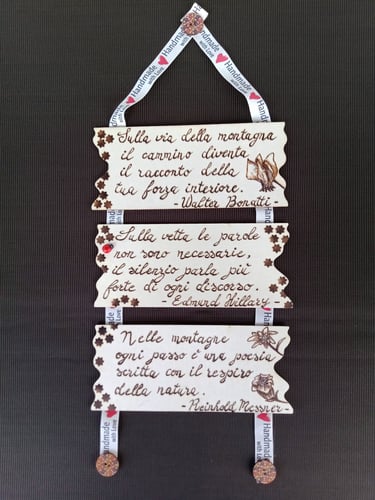 Handmade
with Love
Handmade
with Love
Handmade
with Love
Handmade
with Love
Sulla via della montagna
il cammino diventa
il racconto della
tua forza interiore.
- Walter Bonatti -
Sulla vetta le parole
non sono necessarie,
il silenzio parla più
forte di ogni discorso.
- Edmund Hillary -
Nelle montagne
ogni passo è una poesia
scritta con il respiro
della natura.
- Reinhold Messner -
Handmade
with Love
Handmade
with Love